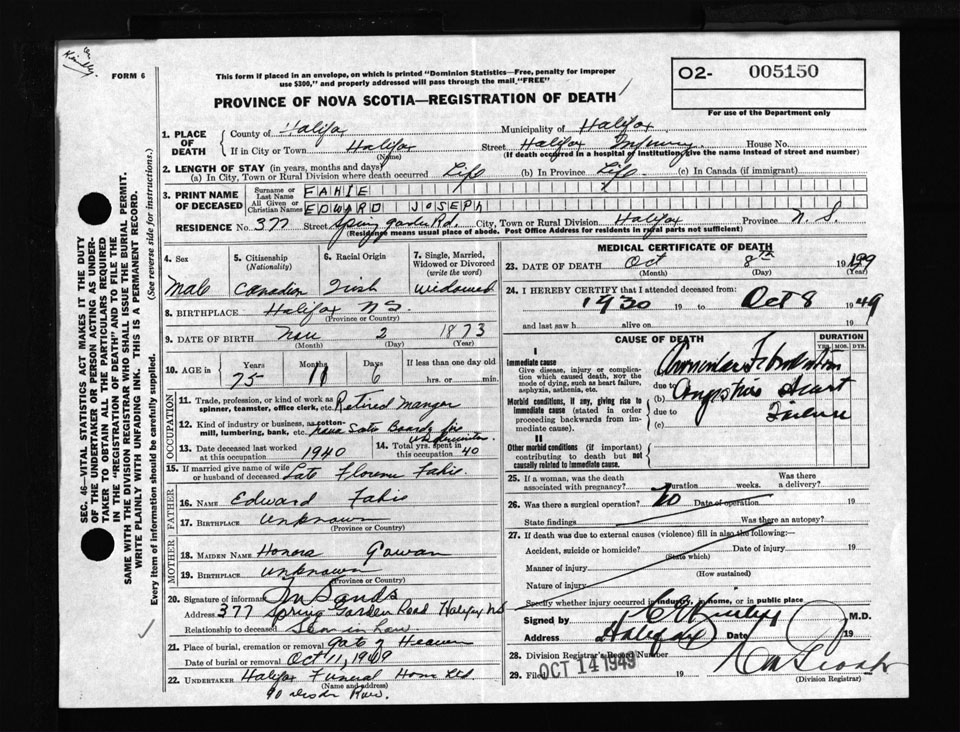 FORM 6
This form if placed in an envelope, on which is printed "Dominion Statistics—Free, penalty for improper
use $300," and properly addressed will pass through the mail "FREE"
O2- 005150
For use of the Department only
PROVINCE OF NOVA SCOTIA—REGISTRATION OF DEATH
1. PLACE OF DEATH
County of Halifax Municipality of Halifax
If in City or Town Halifax Street Halifax Infirmary House No.
(Name) (If death occurred in a hospital or institution, give the name instead of street and number)
2. LENGTH OF STAY (in years, months and days)
(a) In City, Town or Rural Division where death occurred Life (b) In Province Life (c) In Canada (if immigrant)
3. PRINT NAME OF DECEASED
Surname or Last Name FAHIE
All Given or Christian Names EDWARD JOSEPH
RESIDENCE No. 377 Street Spring Garden Rd. City, Town or Rural Division Halifax Province N.S.
(Residence means usual place of abode. Post Office Address for residents in rural parts not sufficient)
4. Sex Male
5. Citizenship (Nationality) Canadian
6. Racial Origin Irish
7. Single, Married, Widowed or Divorced (write the word) widowed
8. BIRTHPLACE Halifax NS.
(Province or Country)
9. DATE OF BIRTH Nov 2 1873
(Month) (Day) (Year)
10. AGE in Years 75 Months 11 Days 6 If less than one day old
hrs. or min.
OCCUPATION
11. Trade, profession or kind of work as
spinner, teamster, office clerk, etc. Retired
12. Kind of industry or business, as cotton-
mill, lumbering, bank, etc. Board Fire
Underwriters
13. Date deceased last worked
at this occupation 1940
14. Total yrs. spent in
this occupation 40
15. If married give name of wife
or husband of deceased Late Florence Fahie
FATHER
16. NAME Edward Fahie
17. BIRTHPLACE unknown
(Province or Country)
MOTHER
18. MAIDEN NAME Honora Gowan
19. BIRTHPLACE unknown
(Province or Country)
20. Signature of informant Sands
Address 377 Spring Garden Road Halifax NS
Relationship to deceased Son in Law
21. Place of burial, cremation or removal Gate of Heaven
Date of burial or removal Oct 11, 1949
22. UNDERTAKER Halifax Funeral Home Ltd
(Name and address)
90 Row.
MEDICAL CERTIFICATE OF DEATH
23. DATE OF DEATH Oct 8th 1949
(Month) (Day) (Year)
24. I HEREBY CERTIFY that I attended deceased from:
1930 19 to Oct 8 1949
and last saw h alive on 19
CAUSE OF DEATH
DURATION
YRS. MOS. DYS.
I
Immediate cause
Give disease, injury or complica-
tion which caused death, not the
mode of dying, such as heart failure,
asphyxia, asthenia, etc.
(a) Auricular Fibrillation
due to
Morbid conditions, if any, giving rise to
immediate cause (stated in order
proceeding backwards from im-
mediate cause).
(b) Congestive Heart
due to Failure
(c)
II
Other morbid conditions (if important)
contributing to death but not
causally related to immediate cause.
25. If a woman, was the death
associated with pregnancy? Duration weeks. Was there a delivery?
26. Was there a surgical operation? No Date of operation 19
State findings Was there an autopsy?
27. If death was due to external causes (violence) fill in also the following:
Accident, suicide or homicide? Date of injury 19
(State which)
Manner of injury
(How sustained)
Nature of injury
Specify whether injury occurred in industry, in home, or in public place
Signed by M.D.
Address Halifax Date 19
28. Division Registrar's Record Number
29. Filed OCT 14 1949 19
(Division Registrar)
SEC. 46—VITAL STATISTICS ACT MAKES IT THE DUTY
OF THE UNDERTAKER OR PERSON ACTING AS UNDER-
TAKER TO OBTAIN ALL THE PARTICULARS REQUIRED
IN THE "REGISTRATION OF DEATH" AND TO FILE THE
SAME WITH THE DIVISION REGISTRAR WHO SHALL ISSUE THE BURIAL PERMIT.
WRITE PLAINLY WITH UNFADING INK. THIS IS A PERMANENT RECORD.
Every item of information should be carefully supplied. (See reverse side for instructions.)